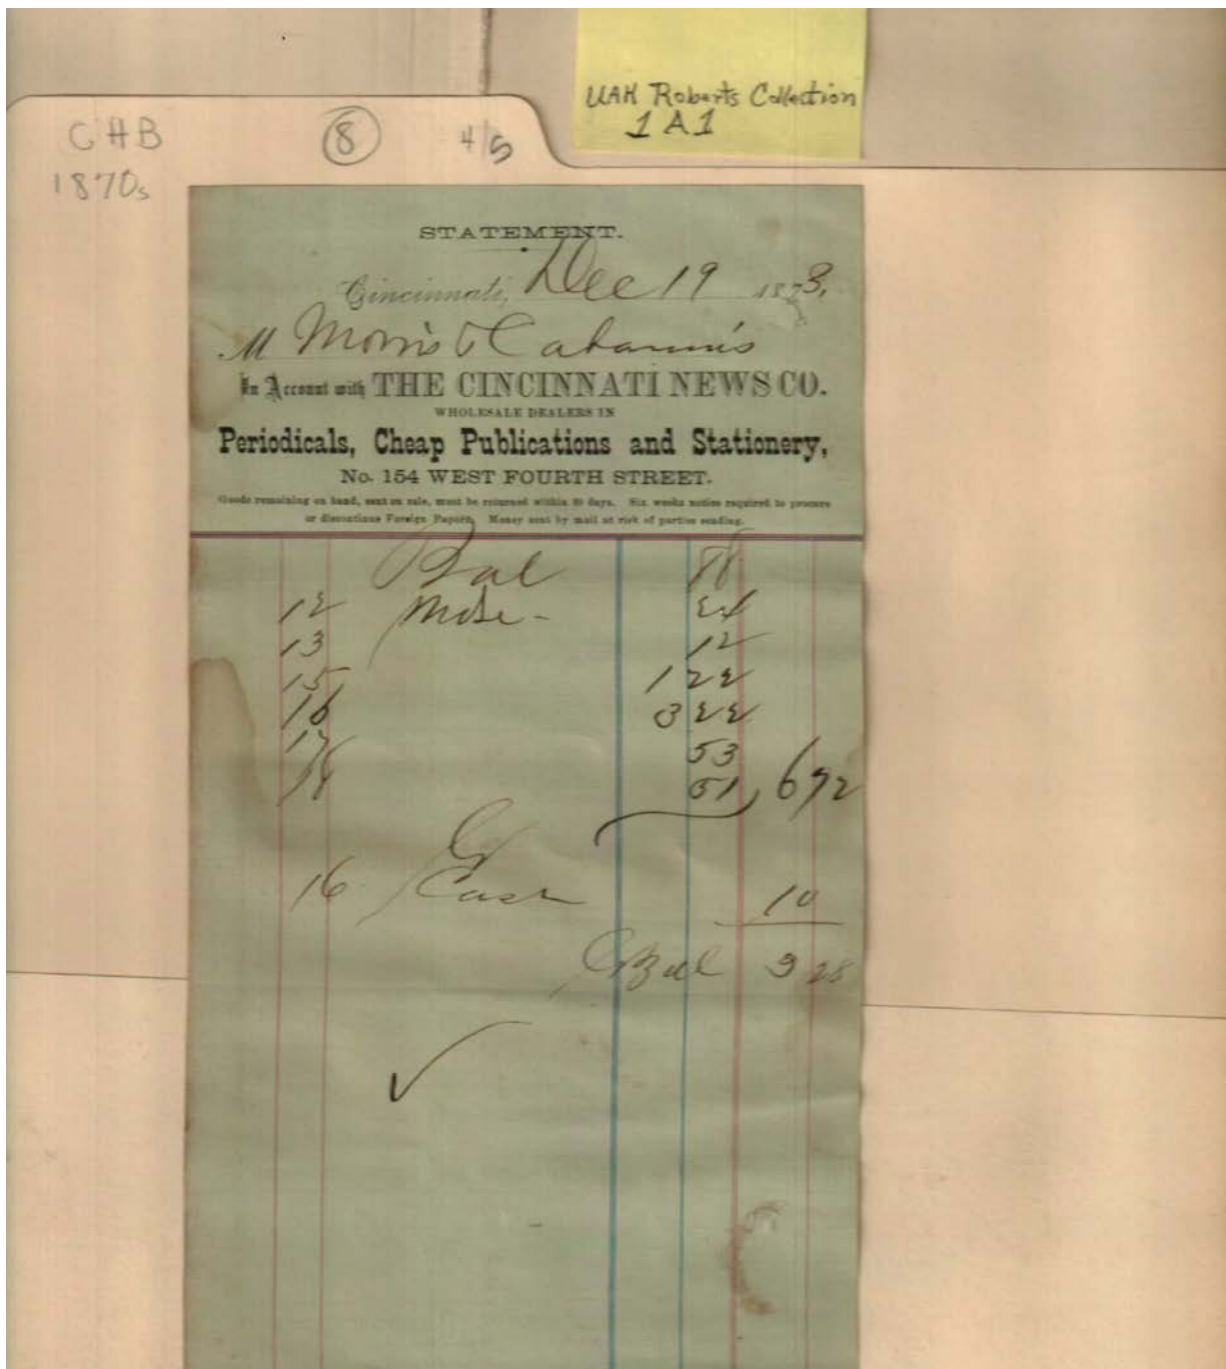 UAH Roberts Collection
1A1
CHB 8 4/5
1870s
STATEMENT.
Cincinnati, Dec 19 1873.
M Morris &
In Account with THE CINCINNATI NEWS CO.
WHOLESALE DEALERS IN
Periodicals, Cheap Publications and Stationery,
No. 154 WEST FOURTH STREET.
Goods remaining on hand, sent on sale, must be returned within 30 days. Six weeks notice required to procure
or discontinue Foreign Papers. Money sent by mail at risk of parties sending.
Bal 88
12 Mdse - 24
13 12
15 1 22
16 3 22
17 53
18 51 6 72
Cr
16 Cash 10
Cr Bal 3 28